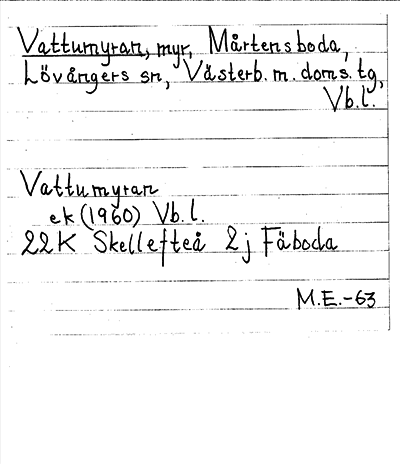 Vattumyran, myr, Mårtensboda,
Lövångers sn, Västerb. m. doms. tg,
Vb.l.
Vattumyran
ek (1960) Vb.l.
22K Skellefteå 2j Fäboda
M.E.-63